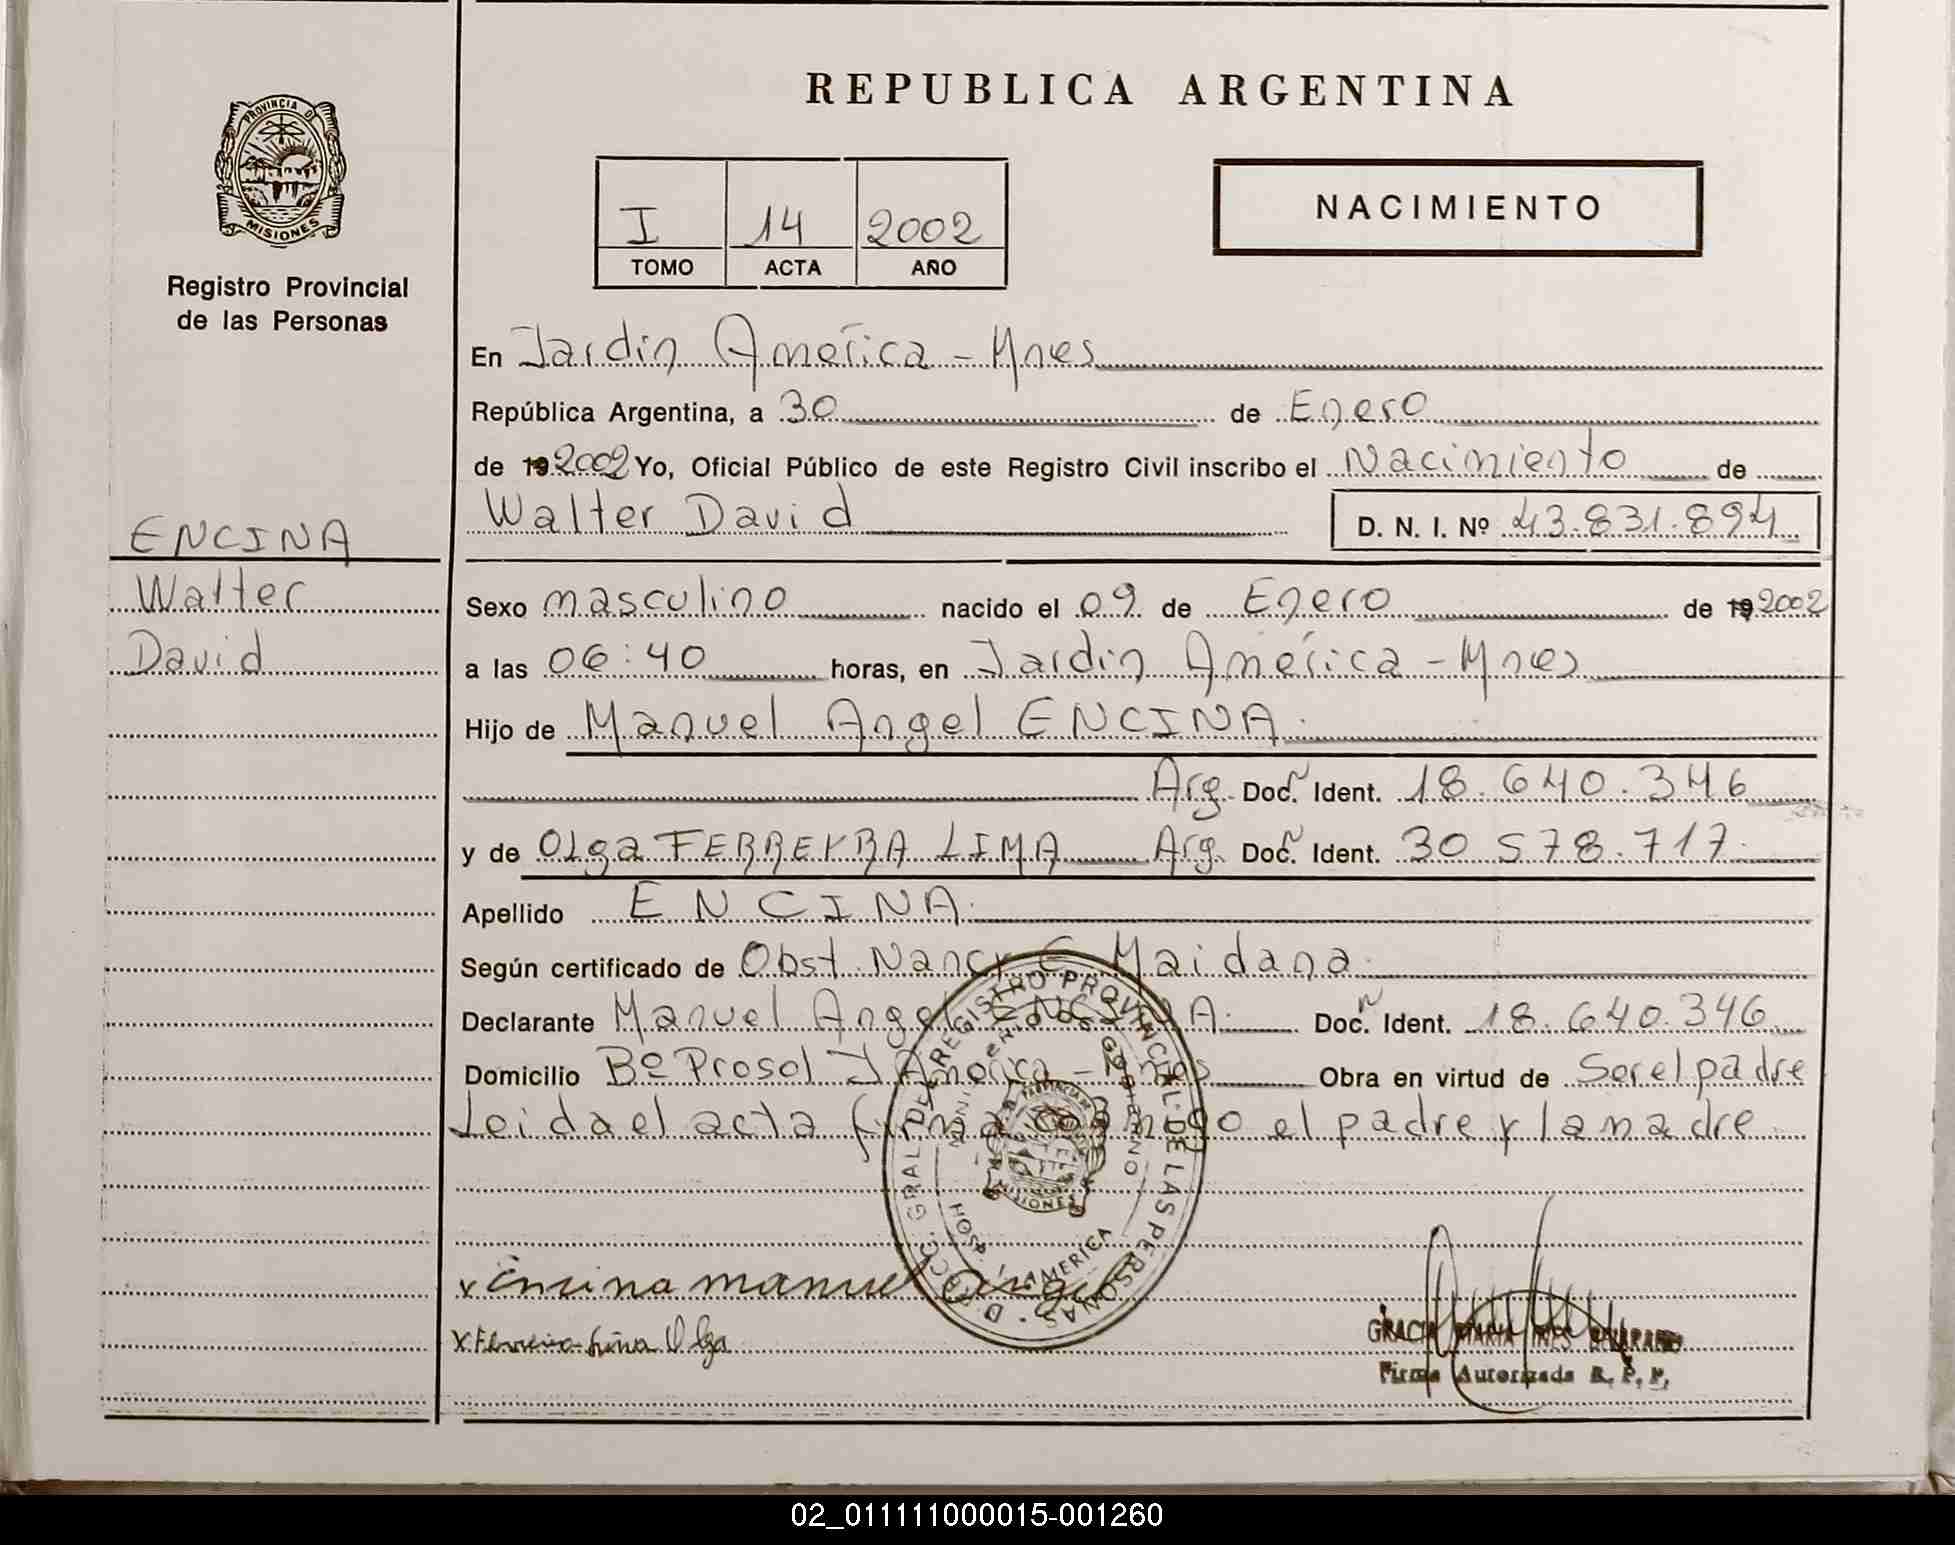 REPUBLICA ARGENTINA
PROVINCIA DE
MISIONES
Registro Provincial
de las Personas
I 14 2002
TOMO ACTA AÑO
NACIMIENTO
En Jardin América - Mnes
República Argentina, a 30 de Enero
de 19 2002 Yo, Oficial Público de este Registro Civil inscribo el Nacimiento de
Walter David D. N. I. Nº 43.831.894
ENCINA
Walter
David
Sexo masculino nacido el 09 de Enero de 19 2002
a las 06:40 horas, en Jardin América - Mnes
Hijo de Manuel Angel ENCINA
Arg. Doc. Ident. 18.640.346
y de Olga FERREYRA LIMA Arg. Doc. Ident. 30 578.717
Apellido ENCINA
Según certificado de Obst. Nancy C Maidana
Declarante Manuel Angel ENCINA Doc. Ident. 18.640.346
Domicilio Bº Prosol J América - Mnes Obra en virtud de Ser el padre
Leida el acta firma conmigo el padre y la madre
DIRECC. GRAL. DEL REGISTRO PROVINCIAL DE LAS PERSONAS
MINISTERIO DE GOBIERNO
PROVINCIA DE
MISIONES
HOSP. J. AMERICA
x Encina manuel Angel
x Ferreira Lima Olga
GRACIA MARIA INES
Firma Autorizada R. P. P.
02_011111000015-001260